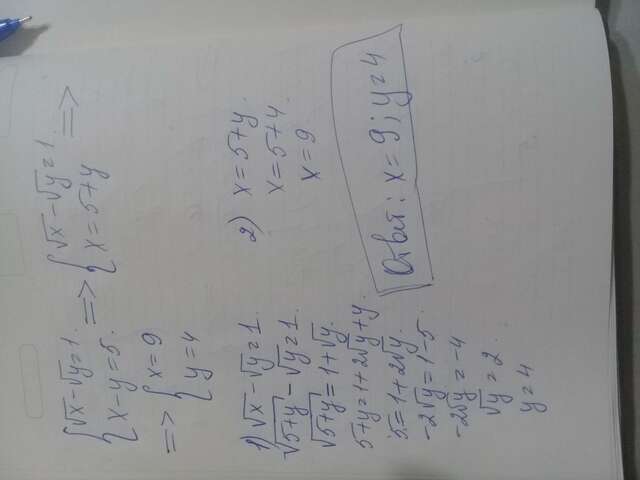 {√x - √y = 1. => {√x - √y = 1 =>
{x - y = 5. {x = 5 + y
=> {x = 9
{y = 4
1) √x - √y = 1.
√5+y - √y = 1.
√5+y = 1 + √y.
5 + y = 1 + 2√y + y.
5 = 1 + 2√y.
-2√y = 1 - 5.
-2√y = -4
√y = 2.
y = 4
2) x = 5 + y.
x = 5 + 4.
x = 9.
Ответ: x = 9; y = 4